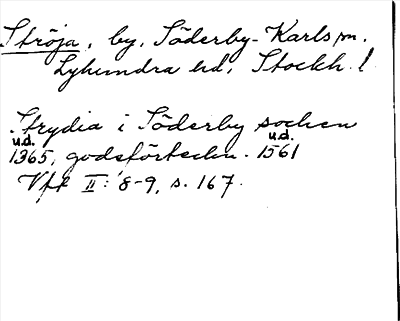 Ströja, by, Söderby-Karls sn.
Lyhundra hd, Stockh. l
Strydia i Söderby socken
u.d. u.d.
1365, godsförteckn. 1561
Vff II: 8-9, s. 167.